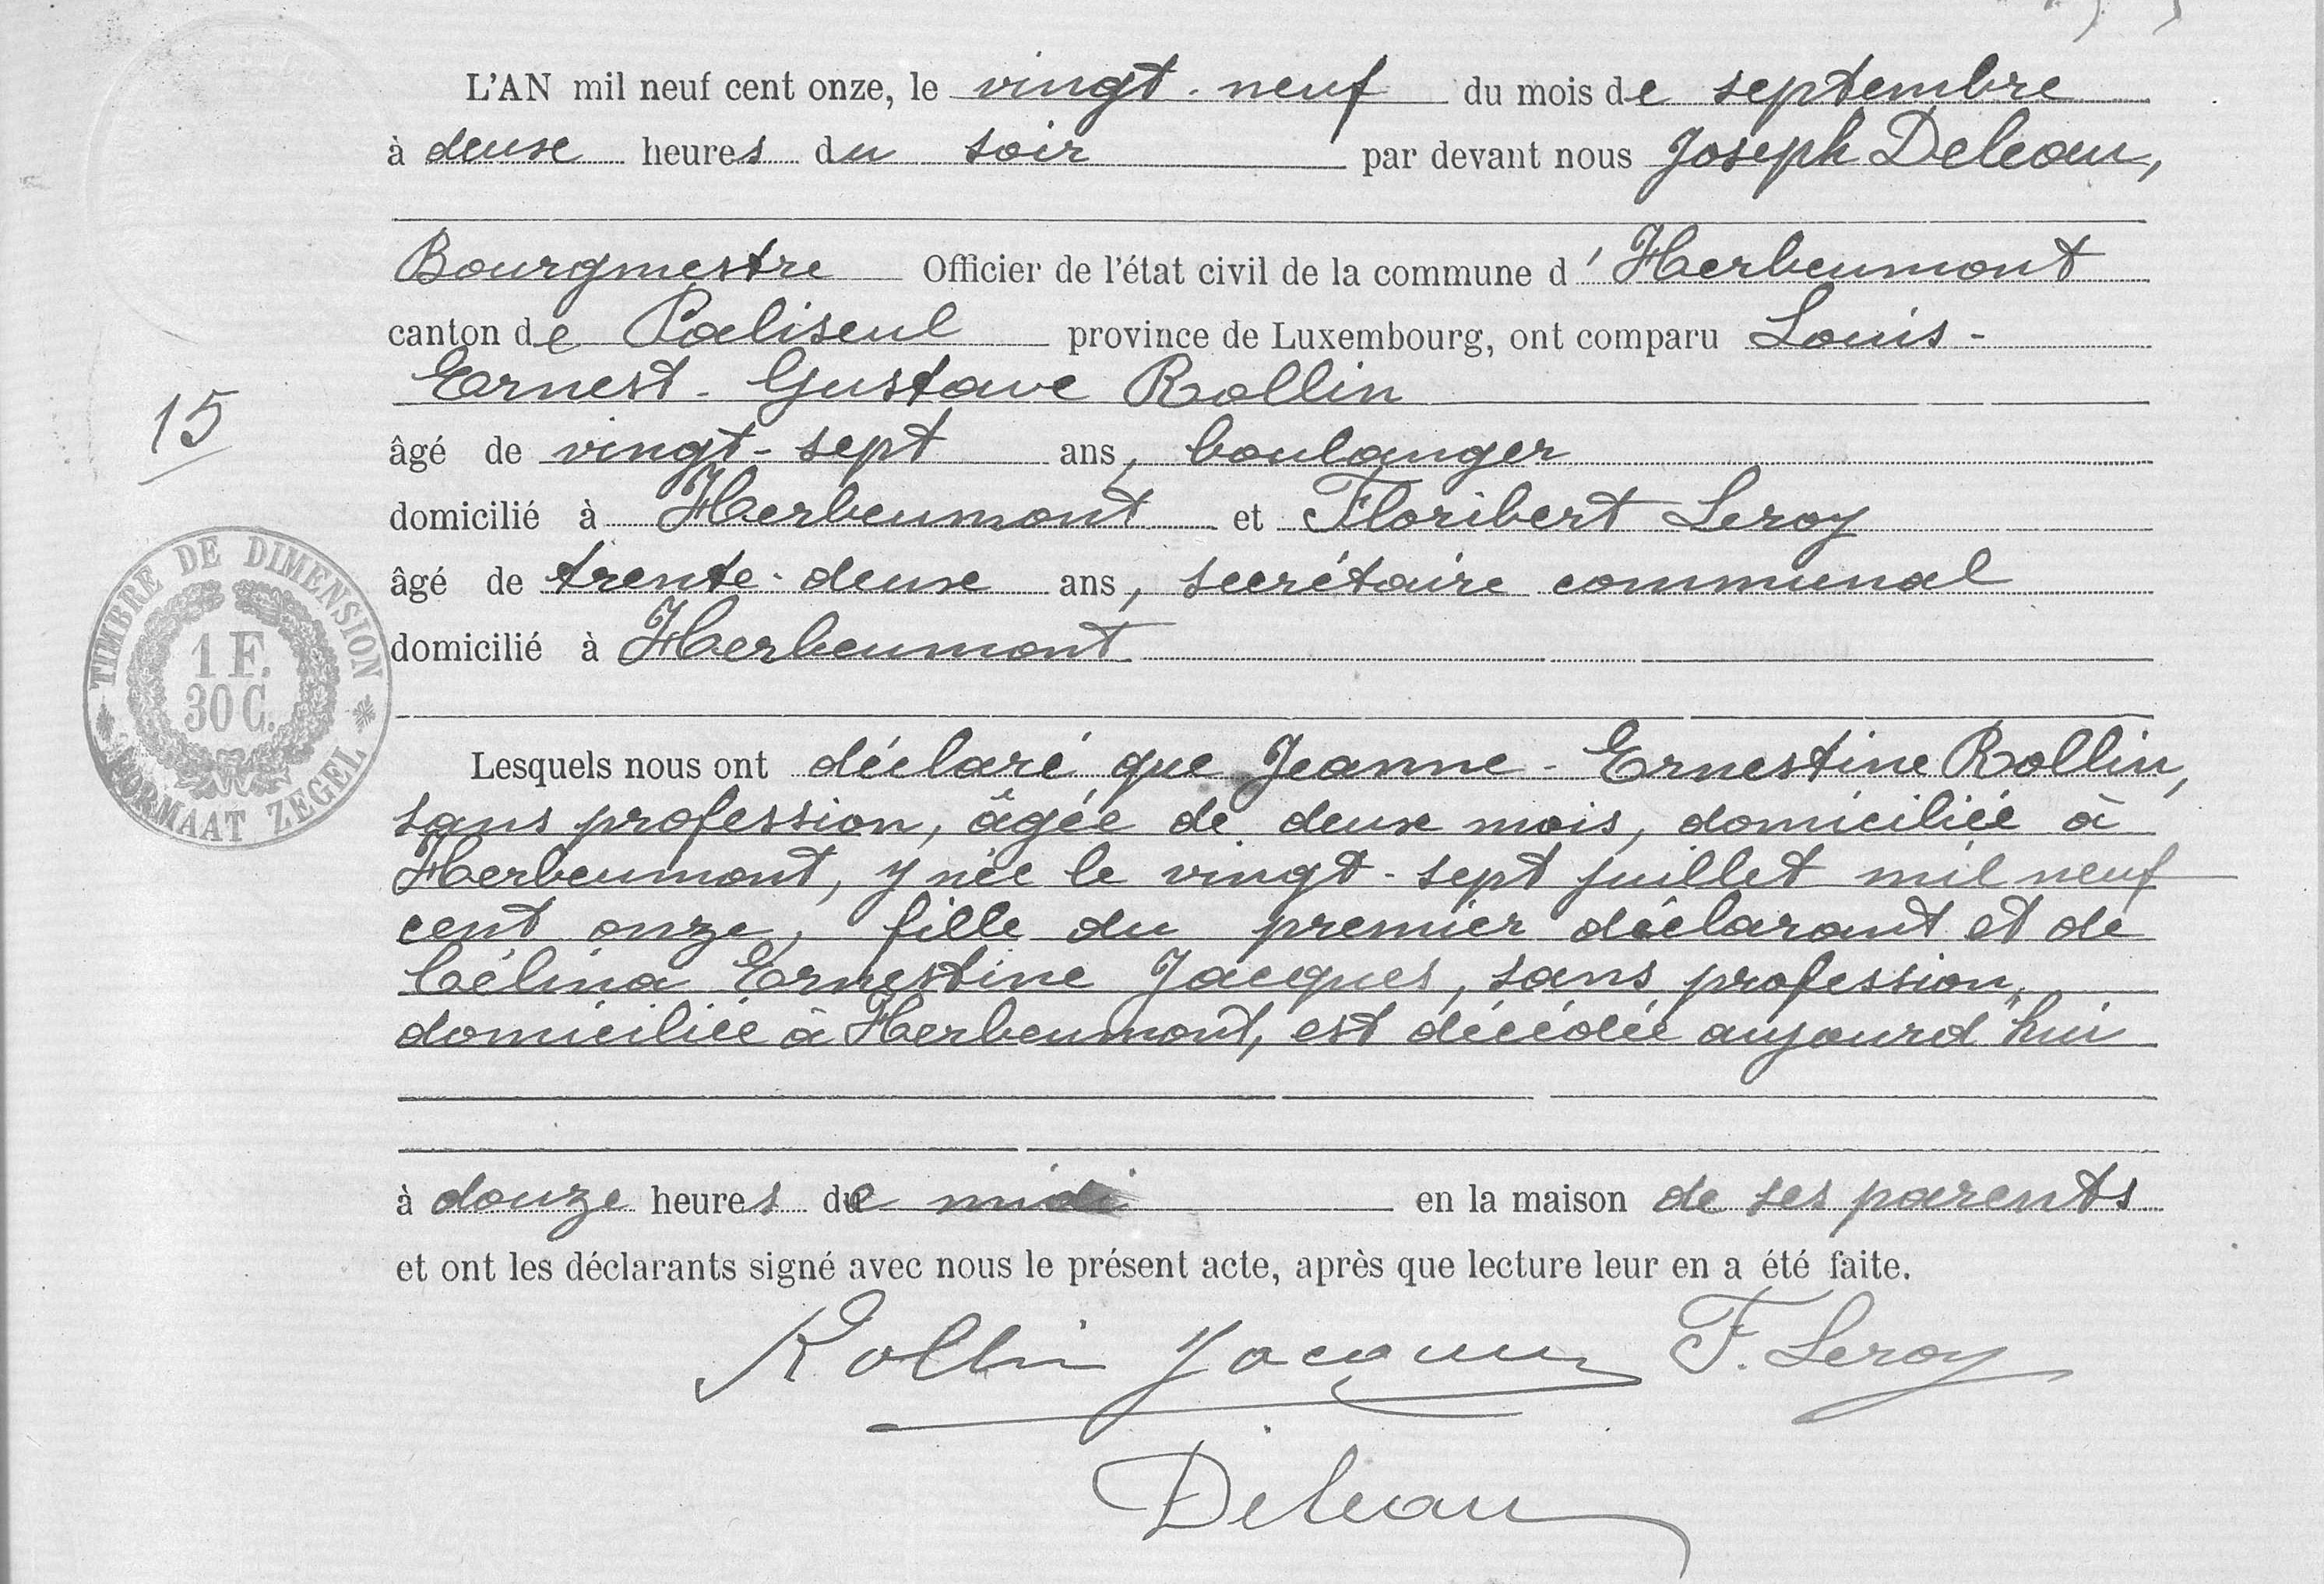 L'AN mil neuf cent onze, le vingt-neuf du mois de septembre
à deux heures du soir par devant nous Joseph Deleau,
Bourgmestre Officier de l'état civil de la commune d'Herbeumont
canton de Paliseul province de Luxembourg, ont comparu Louis-
Ernest-Gustave Rollin
15
âgé de vingt-sept ans, boulanger
domicilié à Herbeumont et Floribert Leroy
âgé de trente-deux ans, secrétaire communal
domicilié à Herbeumont
TIMBRE DE DIMENSION
1 F.
30 C.
FORMAAT ZEGEL
Lesquels nous ont déclaré que Jeanne-Ernestine Rollin,
sans profession, âgée de deux mois, domiciliée à
Herbeumont, y née le vingt-sept juillet mil neuf
cent onze, fille du premier déclarant et de
Célina Ernestine Jacques, sans profession,
domiciliée à Herbeumont, est décédée aujourd'hui
à douze heures de midi en la maison de ses parents
et ont les déclarants signé avec nous le présent acte, après que lecture leur en a été faite.
Rollin Jacques F. Leroy
Deleau